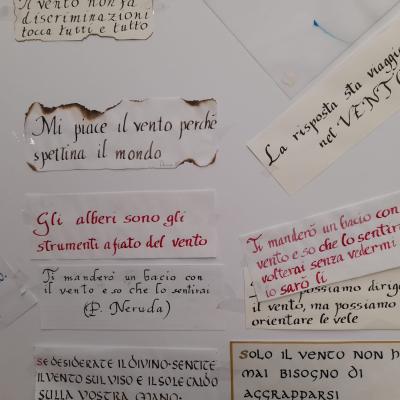 Il vento non fa
discriminazioni
tocca tutti e tutto
Mi piace il vento perché
spettina il mondo
La risposta sta viaggia
nel VENTO
Gli alberi sono gli
strumenti a fiato del vento
Ti manderò un bacio con
il vento e so che lo sentirai
(P. Neruda)
Ti manderò un bacio con
vento e so che lo sentira
volterai senza vedermi
io sarò lì
possiamo dirige
il vento, ma possiamo
orientare le vele
SE DESIDERATE IL DIVINO·SENTITE
IL VENTO SUL VISO E IL SOLE CALDO
SULLA VOSTRA MANO·
SOLO IL VENTO NON H
MAI BISOGNO DI
AGGRAPPARSI